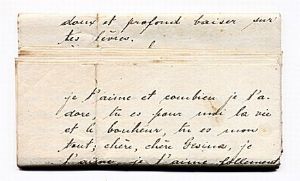 doux et profond baiser sur
tes lèvres.
je t'aime et combien je t'a-
dore, tu es pour moi la vie
et le bonheur, tu es mon
tout, chère, chère Gesina, je
t'adore, je t'aime follement